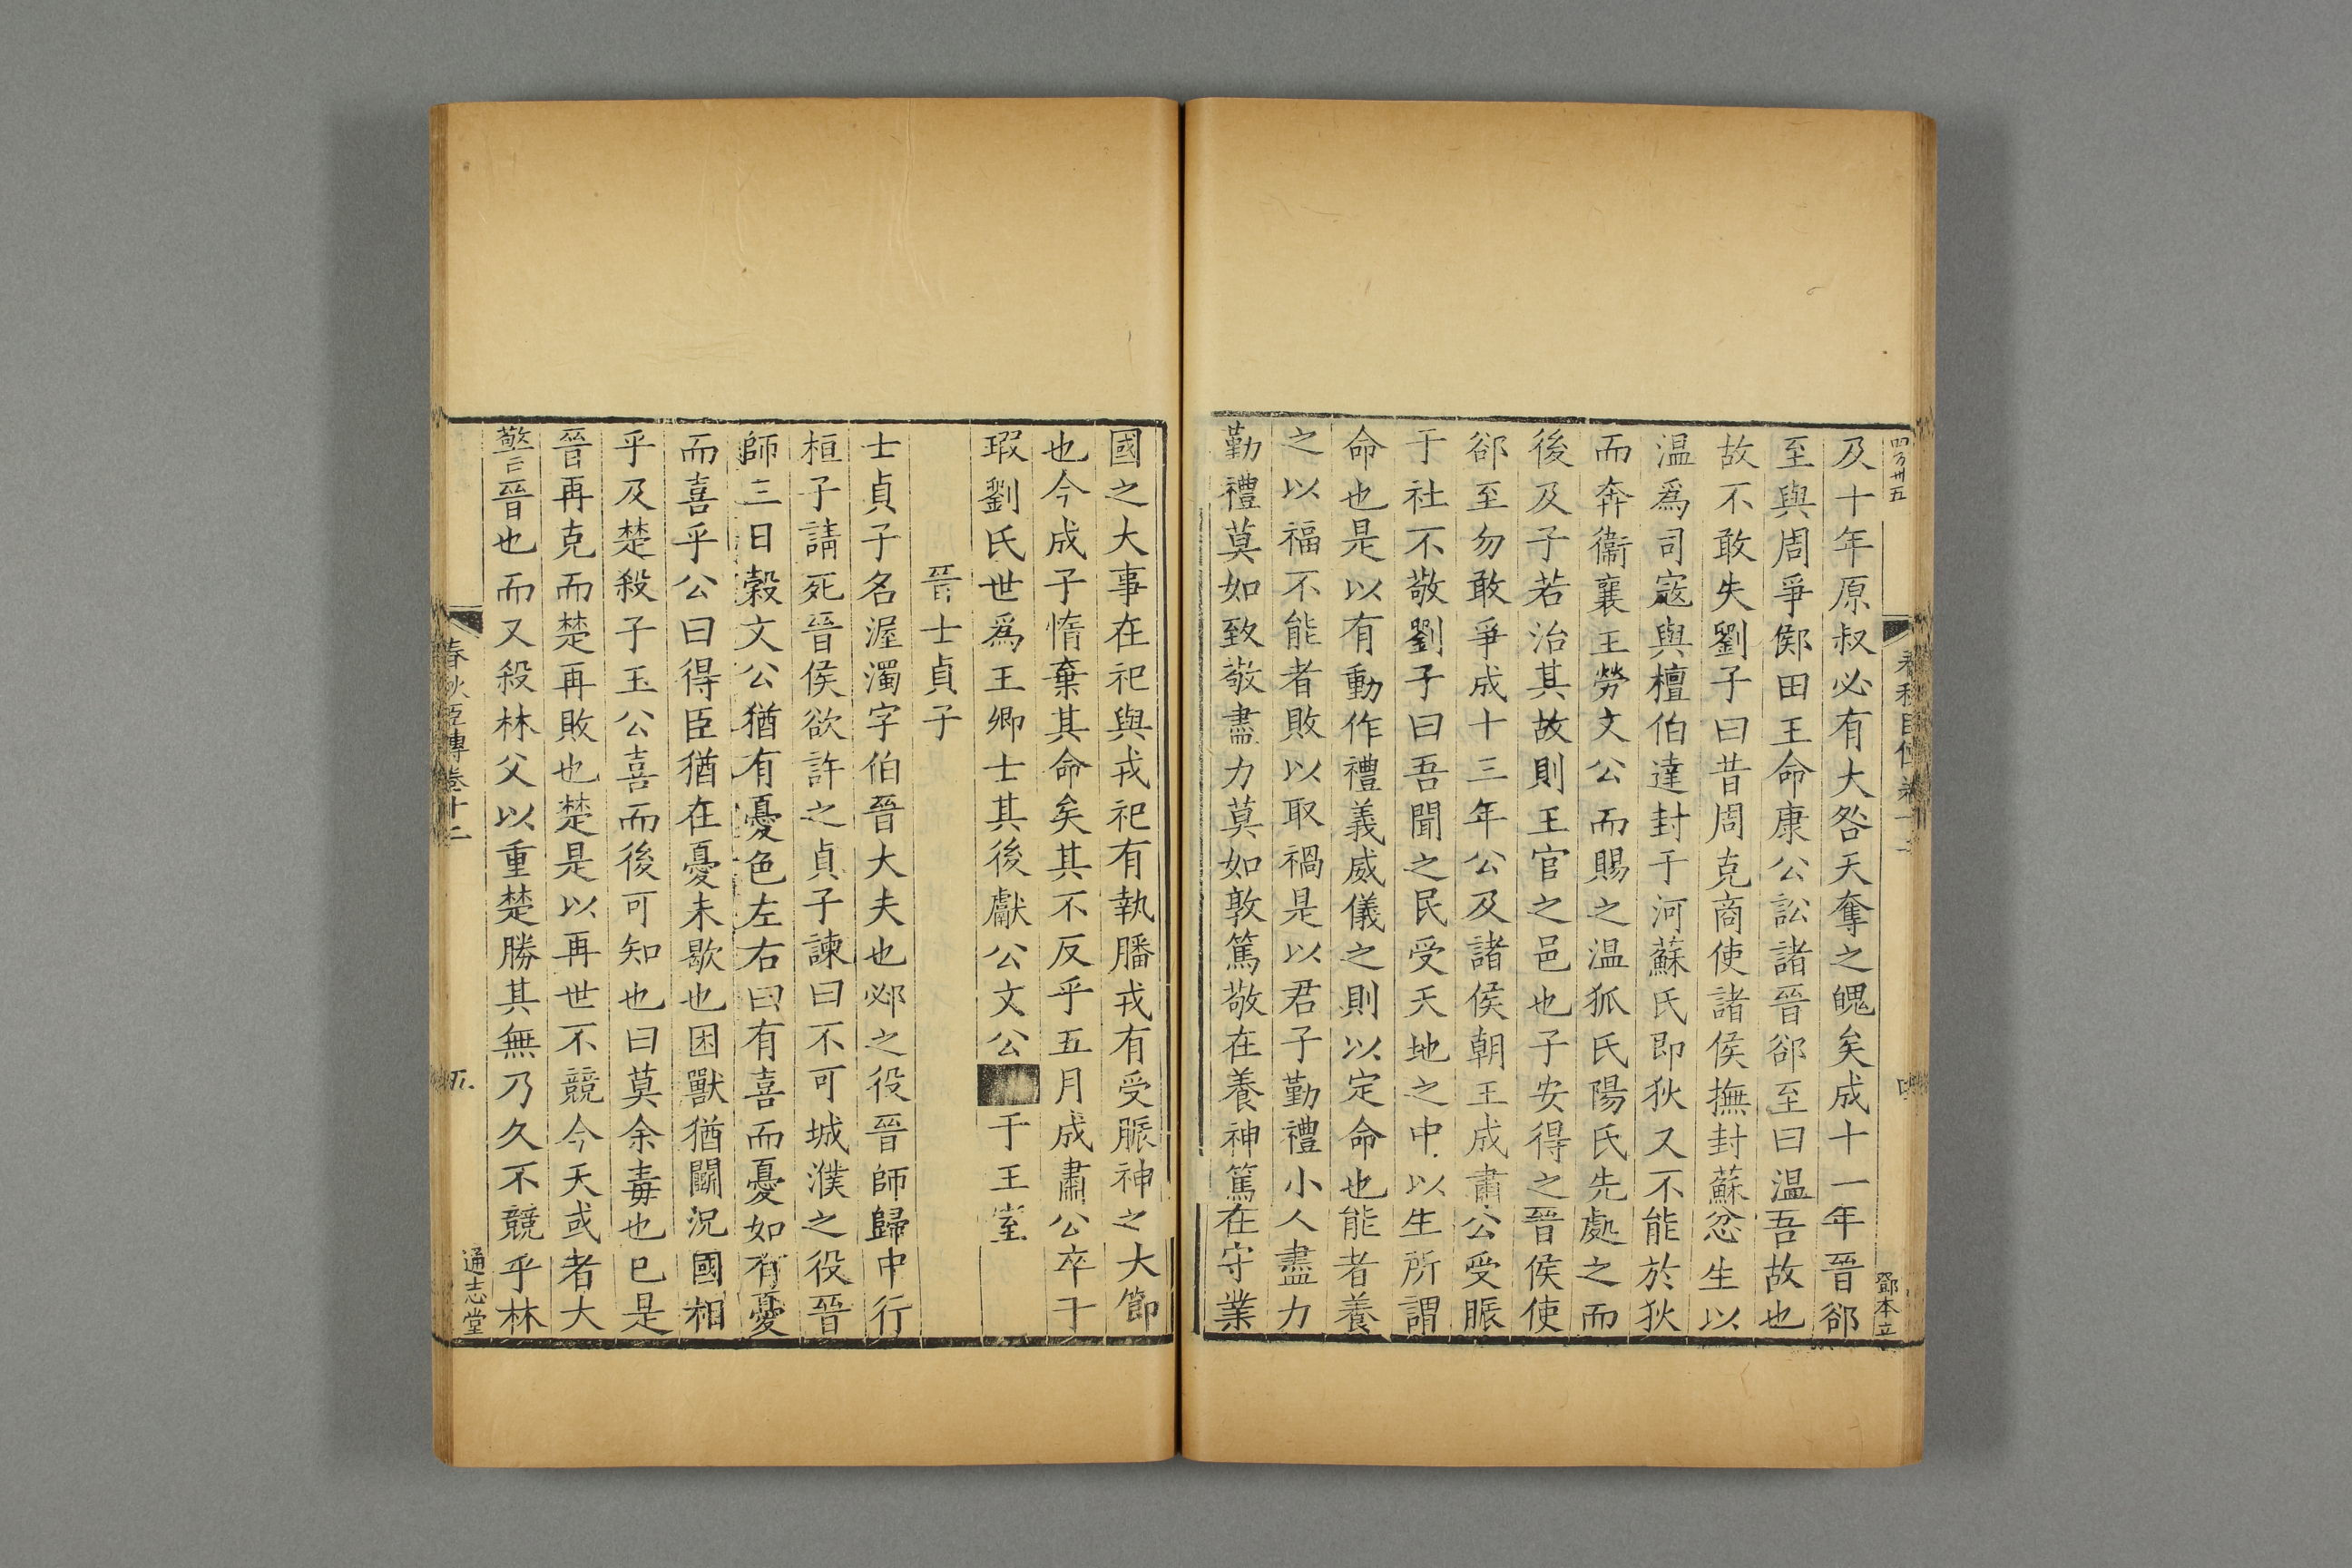 四百卅五
春秋臣傳卷十二
四
鄧本立
及十年原叔必有大咎天奪之魄矣成十一年晉郤
至與周爭鄇田王命康公訟諸晉郤至曰温吾故也
故不敢失劉子曰昔周克商使諸侯撫封蘇忿生以
温爲司寇與檀伯達封于河蘇氏即狄又不能於狄
而奔衞襄王勞文公而賜之温狐氏陽氏先處之而
後及子若治其故則王官之邑也子安得之晉侯使
郤至勿敢爭成十三年公及諸侯朝王成肅公受脤
于社不敬劉子曰吾聞之民受天地之中以生所謂
命也是以有動作禮義威儀之則以定命也能者養
之以福不能者敗以取禍是以君子勤禮小人盡力
勤禮莫如致敬盡力莫如敦篤敬在養神篤在守業
國之大事在祀與戎祀有執膰戎有受脤神之大節
也今成子惰棄其命矣其不反乎五月成肅公卒于
瑕劉氏世爲王卿士其後獻公文公于王室
晉士貞子
士貞子名渥濁字伯晉大夫也邲之役晉師歸中行
桓子請死晉侯欲許之貞子諫曰不可城濮之役晉
師三日穀文公猶有憂色左右曰有喜而憂如有憂
而喜乎公曰得臣猶在憂未歇也困獸猶鬭況國相
乎及楚殺子玉公喜而後可知也曰莫余毒也已是
晉再克而楚再敗也楚是以再世不競今天或者大
警晉也而又殺林父以重楚勝其無乃久不競乎林
春秋臣傳卷十二
五
通志堂